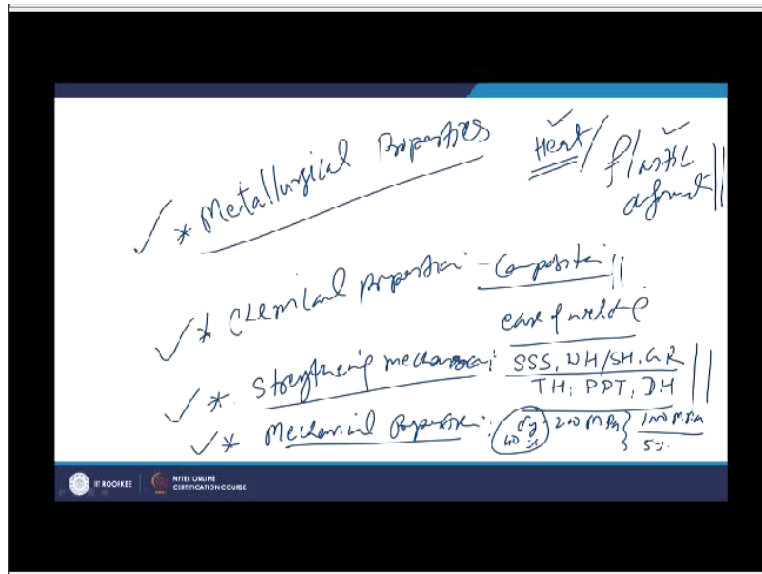 * Metallurgical Properties Heat / Plastic
deformat
* Chemical properties - Composition
ease of welding
* Strengthening mechanism: SSS, WH/SH, GR
TH, PPT, DH
* Mechanical Properties: 40% 200 MPa 1000 MPa
5%
IIT ROORKEE NPTEL ONLINE
CERTIFICATION COURSE